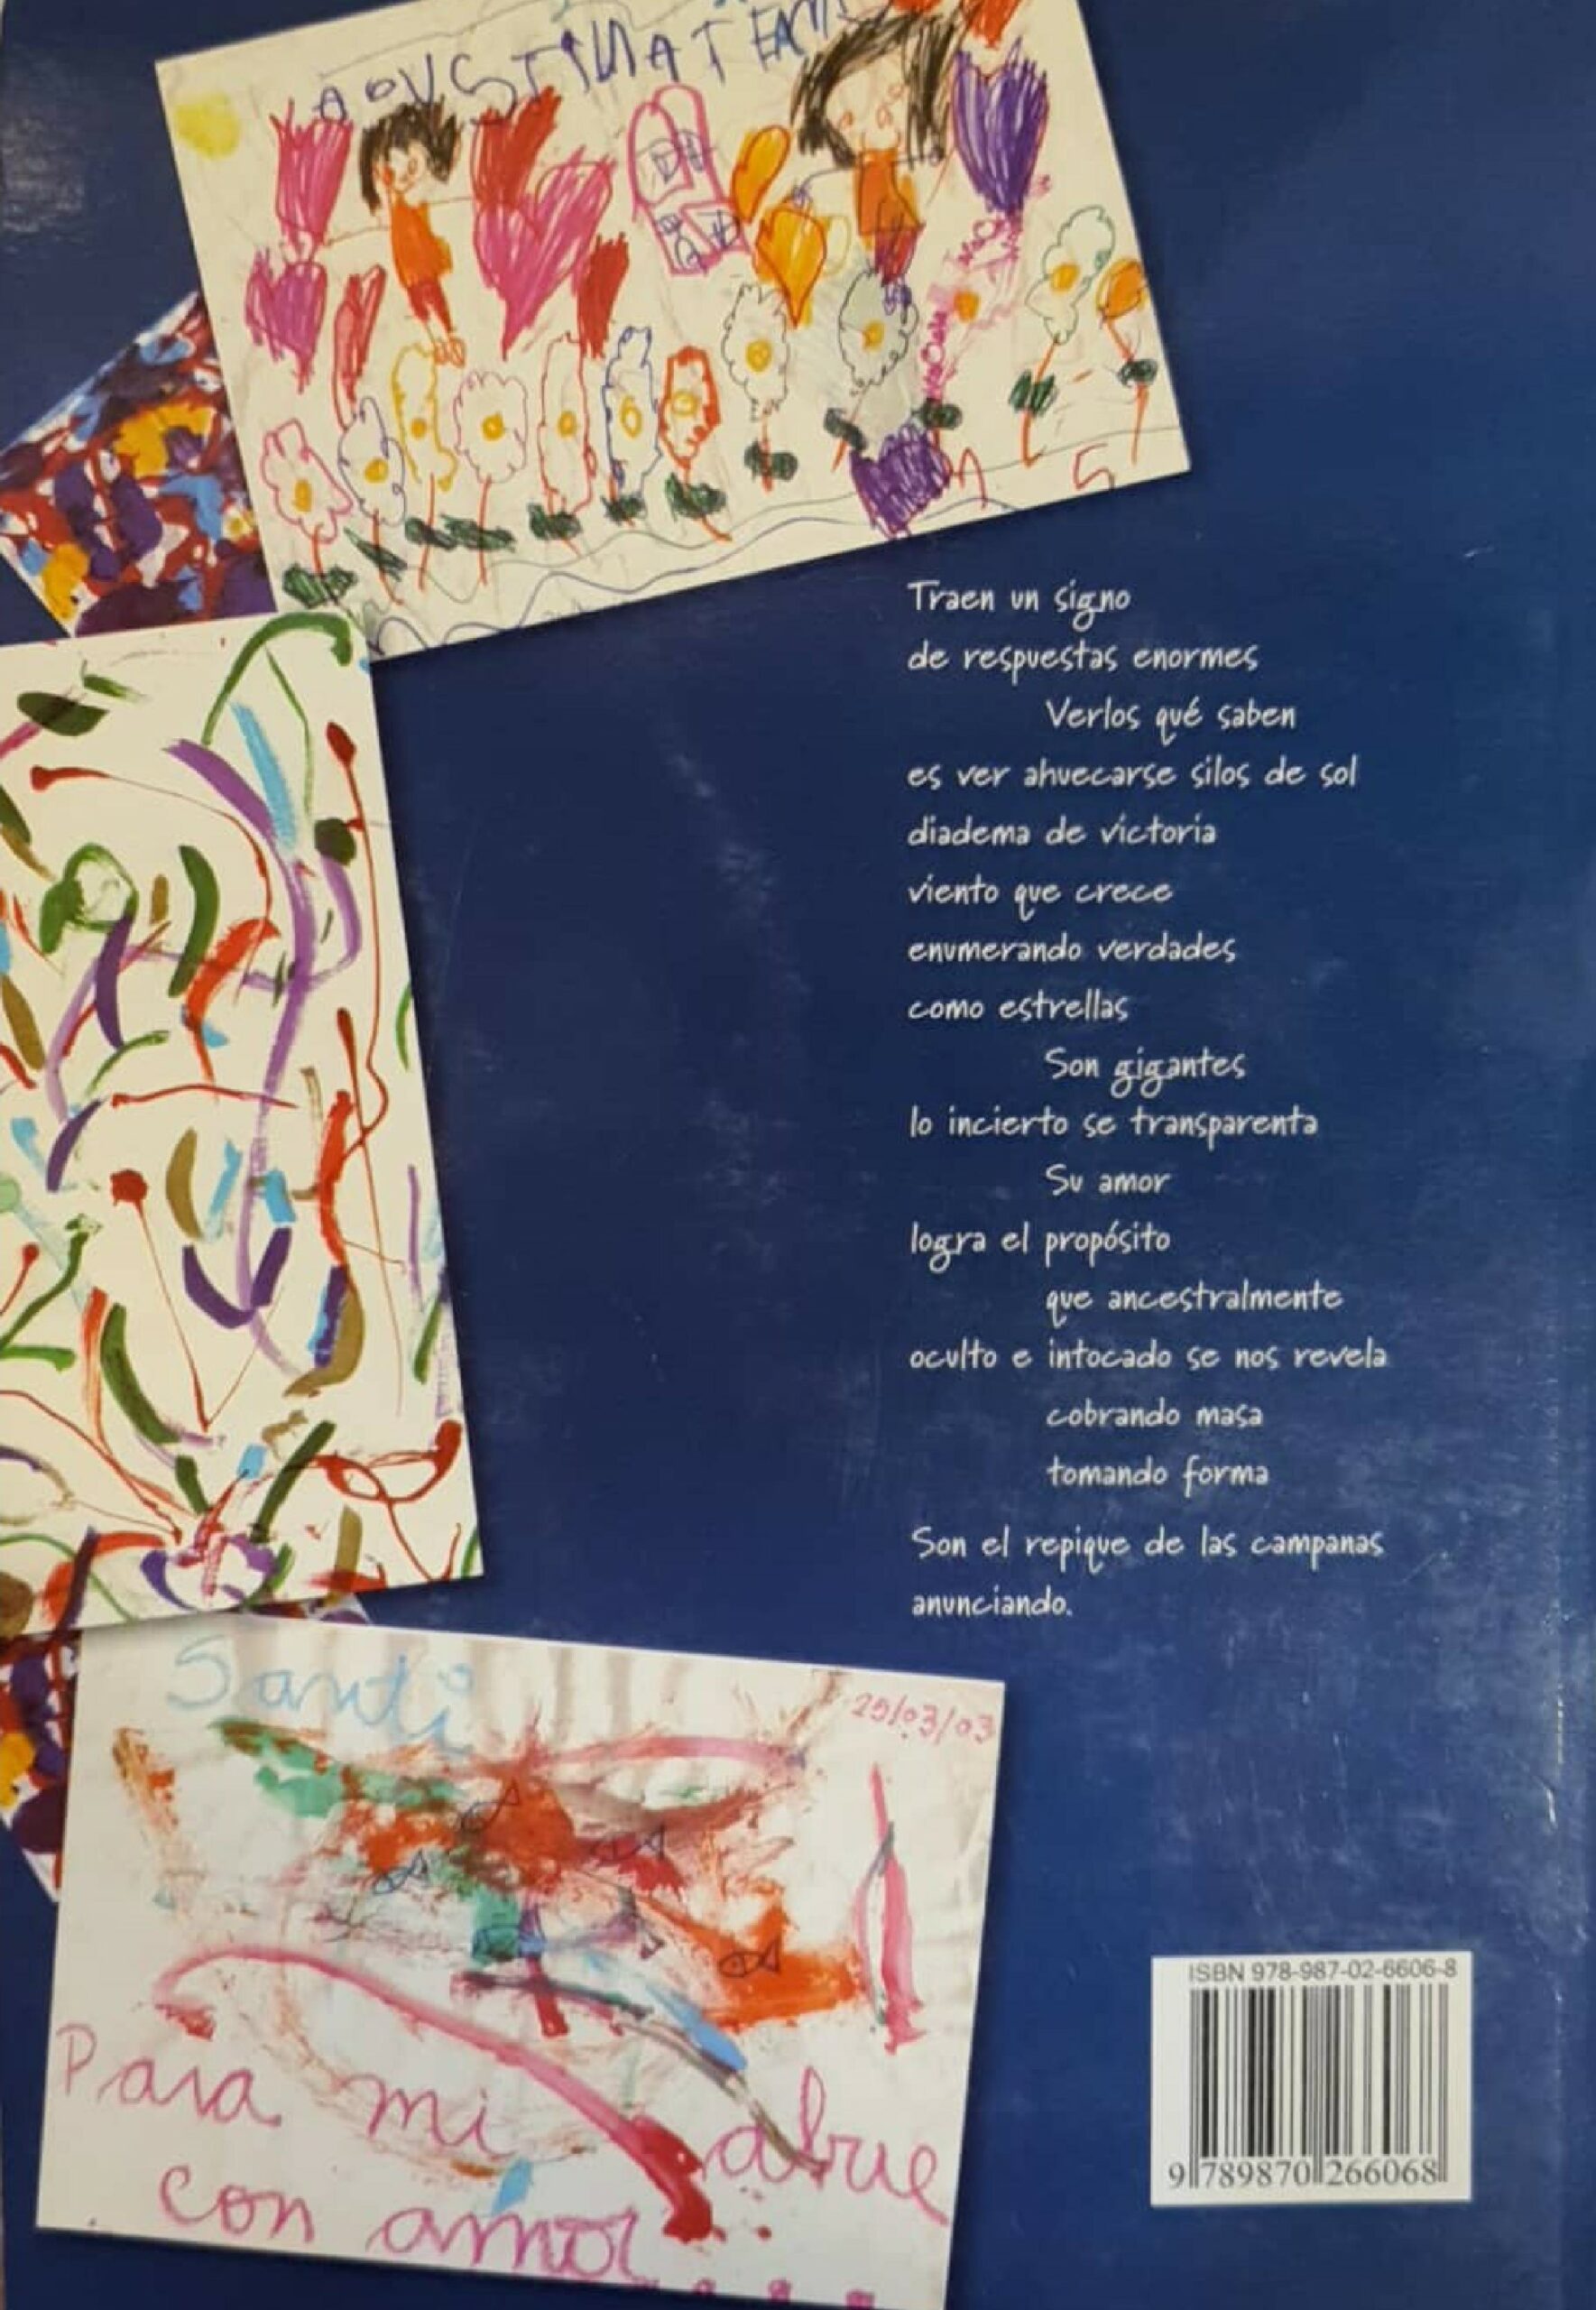 AGUSTINA TE AMO
Traen un signo
de respuestas enormes
Verlos qué saben
es ver ahuecarse silos de sol
diadema de victoria
viento que crece
enumerando verdades
como estrellas
Son gigantes
lo incierto se transparenta
Su amor
logra el propósito
que ancestralmente
oculto e intocado se nos revela
cobrando masa
tomando forma
Son el repique de las campanas
anunciando.
Santi
25/03/03
Para mi abue
con amor
ISBN 978-987-02-6606-8
9 789870 266068